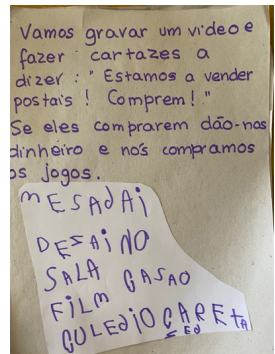 Vamos gravar um video e
fazer cartazes a
dizer : " Estamos a vender
postais ! Comprem ! "
Se eles comprarem dão-nos
dinheiro e nós compramos
os jogos.
MESADAi
DESAiNO
SALA GASAO
FiLM
GULEJiO CARETA